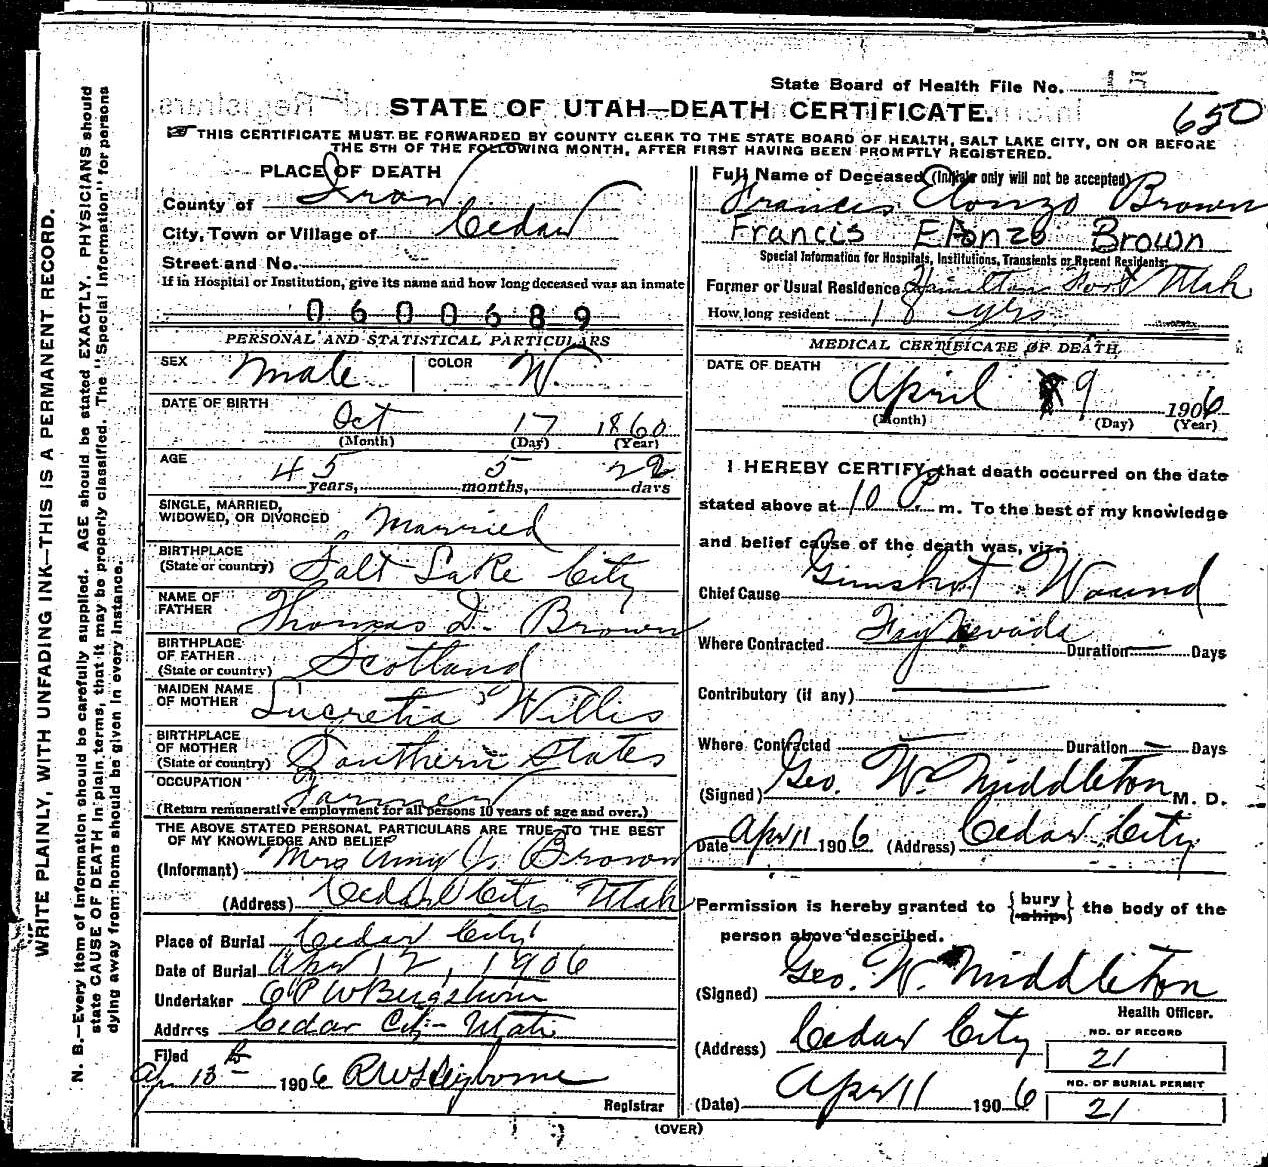 State Board of Health File No. 15
STATE OF UTAH—DEATH CERTIFICATE.
650
THIS CERTIFICATE MUST BE FORWARDED BY COUNTY CLERK TO THE STATE BOARD OF HEALTH, SALT LAKE CITY, ON OR BEFORE
THE 5TH OF THE FOLLOWING MONTH, AFTER FIRST HAVING BEEN PROMPTLY REGISTERED.
PLACE OF DEATH
County of Iron
City, Town or Village of Cedar
Street and No.
If in Hospital or Institution, give its name and how long deceased was an inmate
0600689
PERSONAL AND STATISTICAL PARTICULARS
SEX Male COLOR W.
DATE OF BIRTH
Oct 17 1860
(Month) (Day) (Year)
AGE
45 years, 5 months, 22 days
SINGLE, MARRIED,
WIDOWED, OR DIVORCED Married
BIRTHPLACE
(State or country) Salt Lake City
NAME OF
FATHER Thomas D. Brown
BIRTHPLACE
OF FATHER
(State or country) Scotland
MAIDEN NAME
OF MOTHER Lucretia Willis
BIRTHPLACE
OF MOTHER
(State or country) Southern States
OCCUPATION Farmer
(Return remunerative employment for all persons 10 years of age and over.)
THE ABOVE STATED PERSONAL PARTICULARS ARE TRUE TO THE BEST
OF MY KNOWLEDGE AND BELIEF
(Informant) Mrs Amy Brown
(Address) Cedar City Utah
Place of Burial Cedar City
Date of Burial Apr 12, 1906
Undertaker
Address Cedar City Utah
Filed
Apr 13 1906
Registrar
Full Name of Deceased (Initials only will not be accepted)
Francis Elonzo Brown
Francis Elonzo Brown
Special Information for Hospitals, Institutions, Transients or Recent Residents:
Former or Usual Residence Hamilton Fort Utah
How long resident 18 yrs
MEDICAL CERTIFICATE OF DEATH
DATE OF DEATH
April 9 1906
(Month) (Day) (Year)
I HEREBY CERTIFY, that death occurred on the date
stated above at 10 P. m. To the best of my knowledge
and belief cause of the death was, viz:
Chief Cause Gunshot Wound
Where Contracted Fay Nevada Duration — Days
Contributory (if any)
Where Contracted — Duration — Days
(Signed) Geo. W. Middleton M. D.
Date Apr 11 1906 (Address) Cedar City
Permission is hereby granted to {bury ship} the body of the
person above described.
(Signed) Geo. W. Middleton
Health Officer.
(Address) Cedar City
NO. OF RECORD
21
(Date) Apr 11 1906
NO. OF BURIAL PERMIT
21
(OVER)
WRITE PLAINLY, WITH UNFADING INK—THIS IS A PERMANENT RECORD.
N. B.—Every item of information should be carefully supplied. AGE should be stated EXACTLY. PHYSICIANS should
state CAUSE OF DEATH in plain terms, that it may be properly classified. The "Special Information" for persons
dying away from home should be given in every instance.